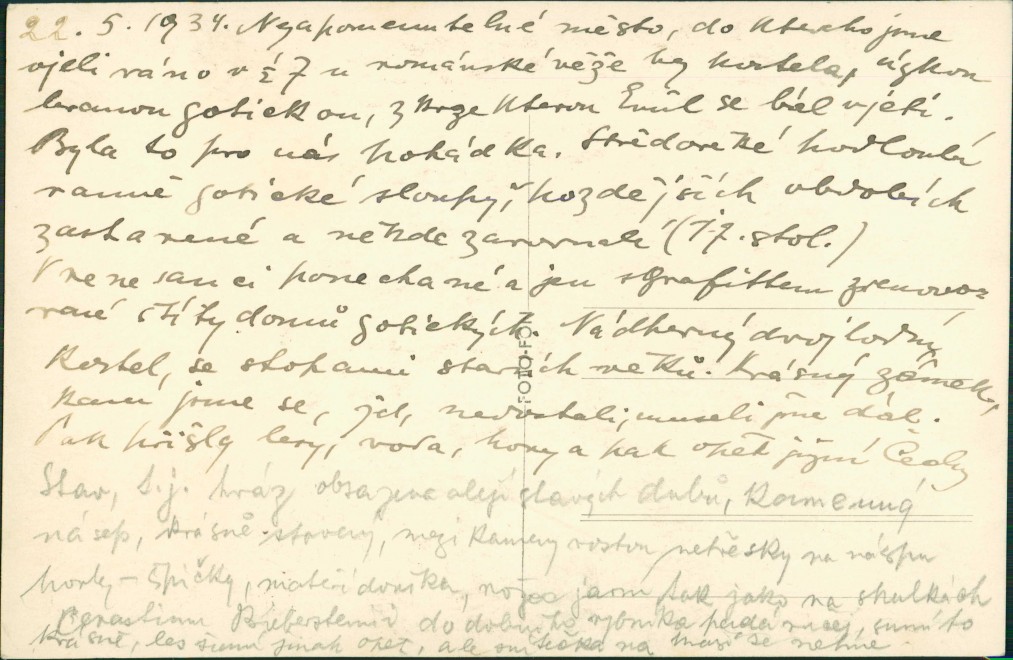 22. 5. 1934. Nezapomenutelné město, do kterého jsme
vjeli ráno v ½ 7 u románské věže bez kostela, úzkou
branou gotickou, skrze kterou Emil se bál vjeti.
Byla to pro nás pohádka. Středověké podloubí
ranně gotické sloupy, pozdějších obdobích
zastavené a někde zarovnale (17. stol.)
V renesanci ponechané a jen sgrafittem zrenovo=
vané štíty domů gotických. Nádherný dvojlodný
kostel, se stopami starých věků. Krásný zámek,
kam jsme se, žel, nedostali, museli jsme dál.
Pak přišly lesy, voda, hory a pak opět jižní Čechy
Stav, t.j. hráz obsazena alejí starých dubů, kamenný
násep, krásně stavený, mezi kameny rostou netřesky na náspu
horky - špičky, mateří douška, jarní tak jako na skalkách
Cerastium Biebersteinii do dobrého rybníka padá šumí to
krásně, les šumí jinak opět, ale sni na mazi se nehne
FOTO-FO